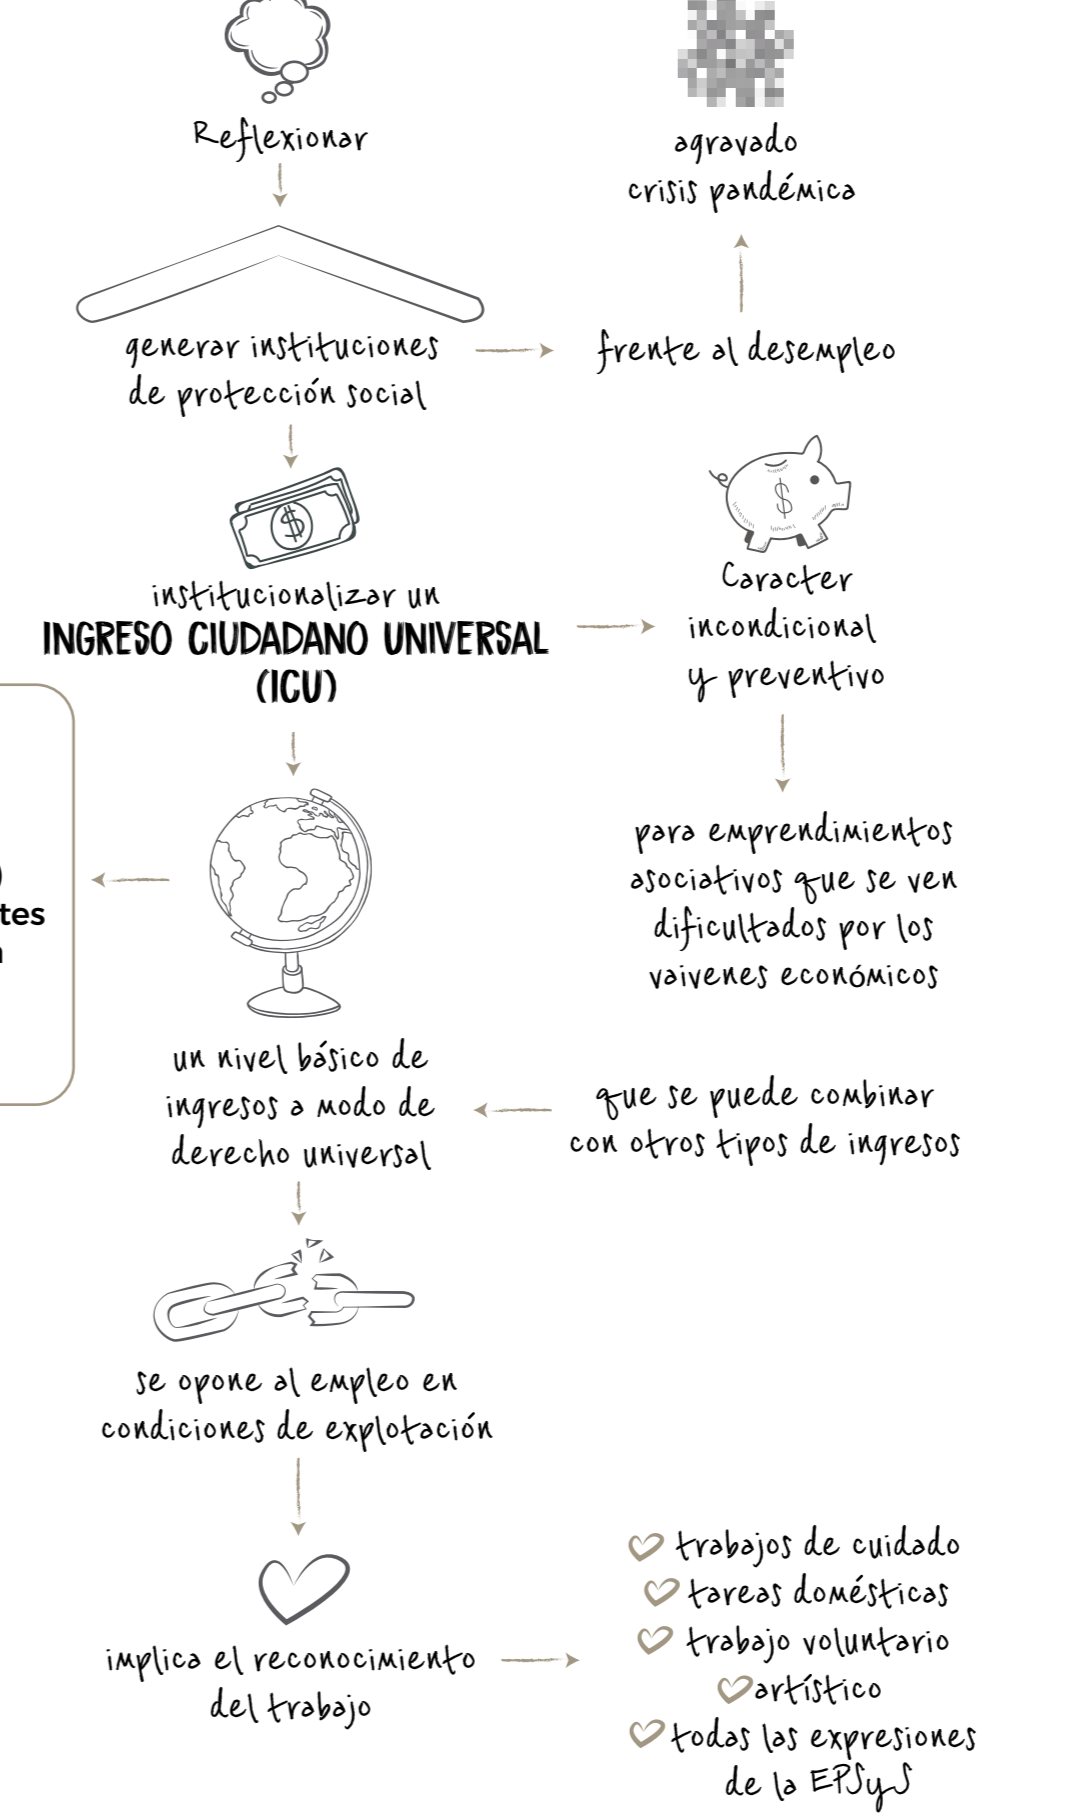 Reflexionar
agravado
crisis pandémica
generar instituciones
de protección social
frente al desempleo
institucionalizar un
INGRESO CIUDADANO UNIVERSAL
(ICU)
Caracter
incondicional
y preventivo
para emprendimientos
asociativos que se ven
dificultados por los
vaivenes económicos
tes
un nivel básico de
ingresos a modo de
derecho universal
que se puede combinar
con otros tipos de ingresos
se opone al empleo en
condiciones de explotación
implica el reconocimiento
del trabajo
trabajos de cuidado
tareas domésticas
trabajo voluntario
artístico
todas las expresiones
de la EPSyS